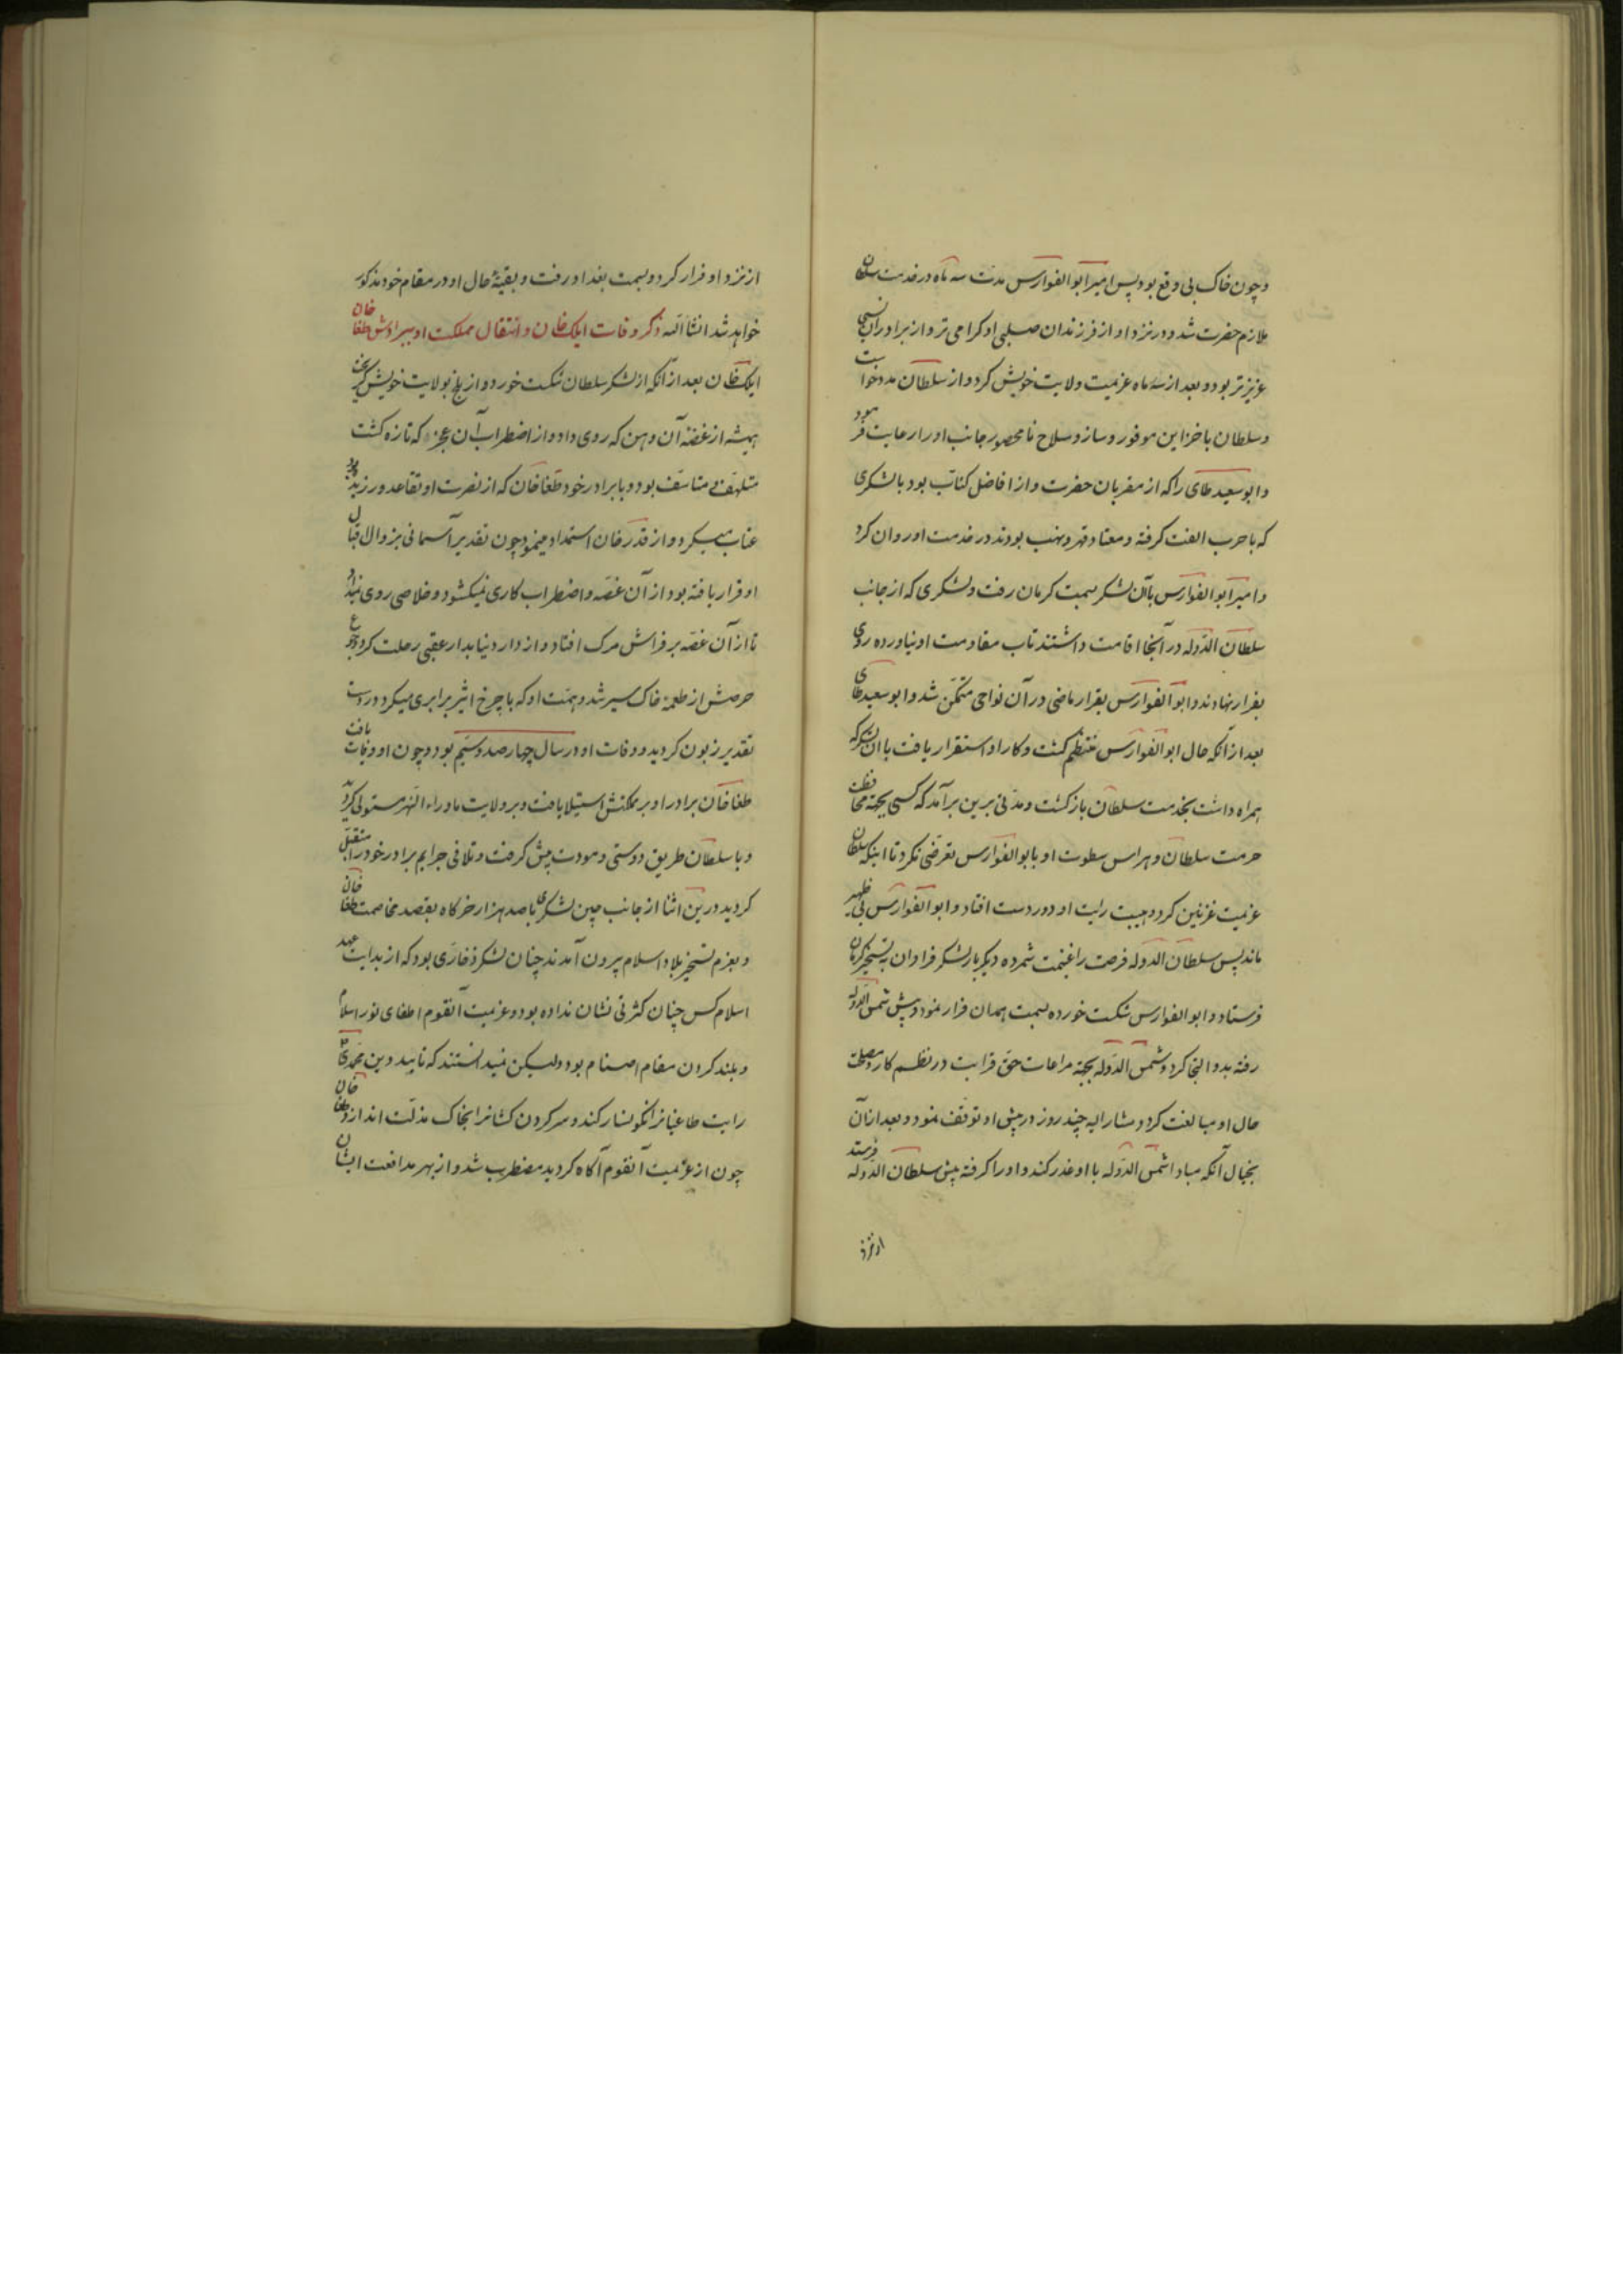 وچون خاک بی وقع بود پس امیر ابوالفوارس مدت سه ماه در خدمت سلطان
ملازم حضرت شد و در نزد او از فرزندان صلبی او کرامی تر و از برادران نسبی
عزیزتر بود و بعد از سه ماه عزیمت ولایت خویش کرد و از سلطان مدد خواست
و سلطان با خزاین موفور و ساز و سلاح نامحصور جانب او را رعایت فرمود
و ابو سعید طای را که از مقربان حضرت و از افاضل کتاب بود با لشکری
که با حرب الفت کرفته و معتاد قهر و نهب بودند در خدمت او روان کرد
و امیر ابوالفوارس باآن لشکر بسمت کرمان رفت و لشکری که از جانب
سلطان الدوله در آنجا اقامت داشتند تاب مقاومت او نیاورده روی
بفرار نهادند و ابو الفوارس بقرار ماضی در آن نواحی متمکن شد و ابو سعید طای
بعد از آنکه حال ابو الفوارس منتظم کشت و کار او استقرار یافت با ان لشکر که
همراه داشت بخدمت سلطان بازکشت و مدتی برین برآمد که کسی بجهة محافظت
حرمت سلطان و هراس سطوت او بابوالفوارس تعرضی نکرد تا اینکه سلطان
عزیمت غزنین کرد و هیبت رایت او دور دست افتاد و ابو الفوارس بی ظهیر
ماند پس سلطان الدوله فرصت را غنیمت شمرده دیکر بار لشکر فراوان به تسخیر کرمان
فرستاد و ابو الفوارس شکست خورده بسمت همدان فرار نمود و پیش شمس الدوله
رفته بدو التجا کرد و شمس الدوله بجهة مراعات حق قرابت در نظم کار و مصلحت
حال او مبالغت کرد و مشارالیه چند روز در پیش او توقف نمود و بعد از آن
بخیال آنکه مبادا شمس الدوله با او غدر کند و او را کرفته پیش سلطان الدوله فرستد
از نزد
از نزد او فرار کرد و بسمت بغداد رفت و بقیهٔ حال او در مقام خود مذکور
خواهد شد انشاالله ذکر وفات ایلک خان و انتقال مملکت او ببرادرش طغا خان
ایلک خان بعد از آنکه از لشکر سلطان شکست خورد و از بلخ بولایت خویش کریخت
همیشه از غصه آن وهن که روی داد و از اضطراب آن عجز که تازه کشت
متلهف و متاسف بود و با برادر خود طغا خان که از نصرت او تقاعد ورزیده بود
عتاب همیکرد و از قدر خان استمداد مینمود چون تقدیر آسمانی بزوال اقبال
او قرار یافته بود از آن غصه و اضطراب کاری نمیکشود و خلاصی روی نمیداد
تا از آن غصه بر فراش مرک افتاد و از دار دنیا بدار عقبی رحلت کرد و جوع
حرصش از طعمهٔ خاک سیر شد و همت او که با چرخ اثیر برابری میکرد در دست
تقدیر زبون کردید و وفات او در سال چهارصد و سیم بود و چون او وفات یافت
طغا خان برادر او بر مملکتش استیلا یافت و بر ولایت ماوراء النهر مستولی کردید
و با سلطان طریق دوستی و مودت پیش کرفت و تلافی جرایم برادر خود را متقبل
کردید درین اثنا از جانب چین لشکری با صد هزار خرکاه بقصد مخاصمت طغا خان
و بعزم تسخیر بلاد اسلام بیرون آمدند چنان لشکر ذخاری بود که از بدایت عهد
اسلام کس چنان کثرتی نشان نداده بود و عزیمت آنقوم اطفای نور اسلام
و بلند کردن مقام اصنام بود ولیکن نمیدانستند که تایید دین محمدی
رایت طاغیانرا نکونسار کند و سر کردن کشانرا بخاک مذلت اندازد و طغا خان
چون از عزیمت آنقوم آکاه کردید مضطرب شد و از بهر مدافعت ایشان